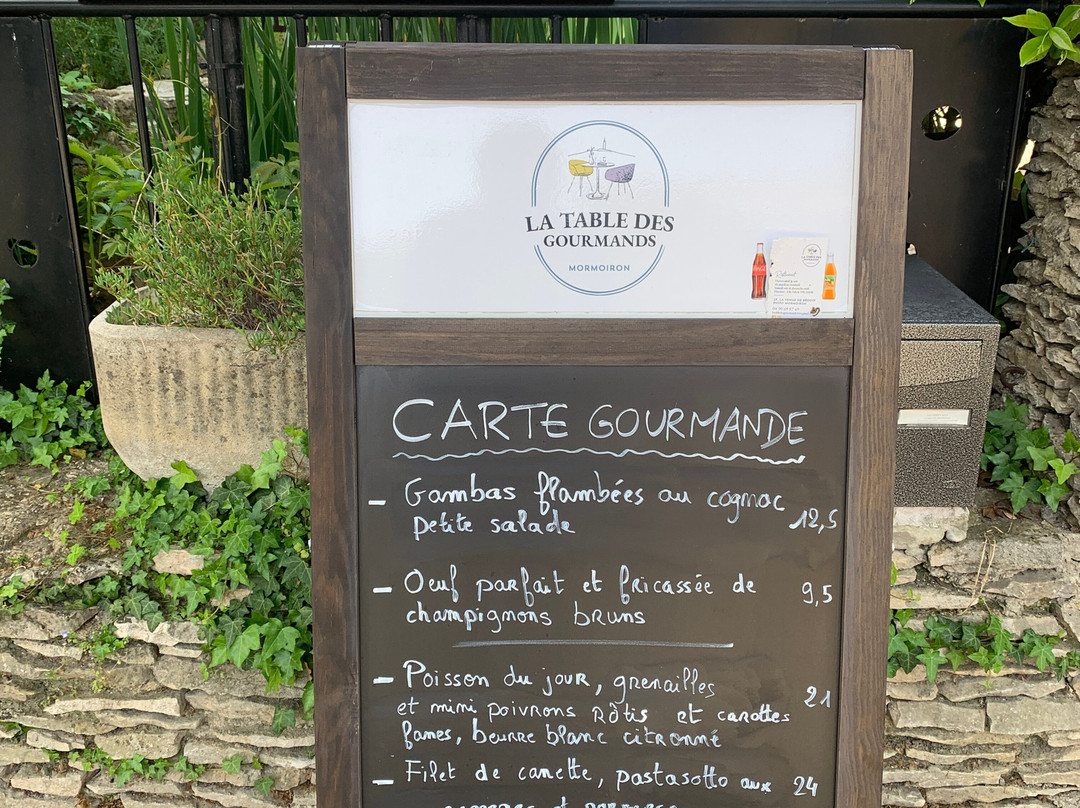 LA TABLE DES
GOURMANDS
MORMOIRON
CARTE GOURMANDE
- Gambas flambées au cognac
petite salade 12,5
- Oeuf parfait et fricassée de 9,5
champignons bruns
- Poisson du jour, grenailles
et mini poivrons rôtis et carottes 21
fanes, beurre blanc citronné
- Filet de canette, pastasotto aux 24
et parmesan